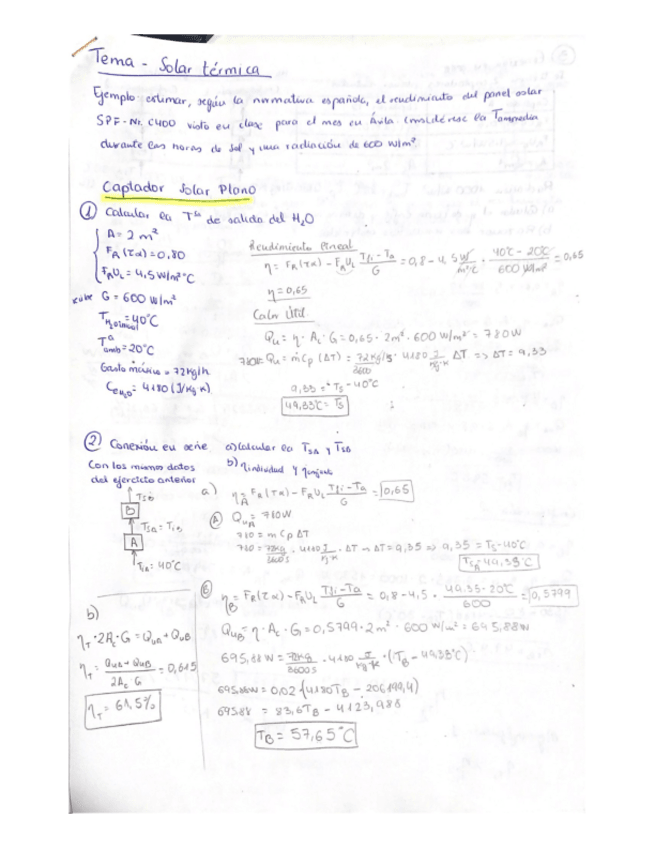 Tema - Solar térmica
Ejemplo estimar, según la normativa española, el rendimiento del panel solar
SPF-Nr. C400 visto en clase para el mes en Ávila. Considérese la Tamb media
durante las horas de sol y una radiación de 600 W/m²
Captador Solar Plano
① Calcular la Tª de salida del H₂O
A = 2 m²
FR(τα) = 0,80
FRUL = 4,5 W/m²°C
G = 600 W/m²
= 40°C
Tª amb = 20°C
Gasto másico = 72 kg/h
= 4180 (J/kg·K)
Rendimiento lineal
η = FR(τα) - FRUL Tfi-Ta/G = 0,8 - 4,5 W/m²°C · 40°C-20°C/600 W/m² = 0,65
η = 0,65
Calor Útil
Qu = η · Ac · G = 0,65 · 2m² · 600 W/m² = 780W
780W = Qu = ṁ Cp (ΔT) = 72 kg/3600 · 4180 J/kg·K ΔT => ΔT = 9,33
9,33 = Ts - 40°C
49,33°C = Ts
② Conexión en serie
Con los mismos datos
del ejercicio anterior
a) Calcular la TSA y TSB
b) η individual y conjunto
TSB
B
TSA = TiB
A
TiA = 40°C
a) ηA = FR(τα) - FRUL Tfi-Ta/G = 0,65
Ⓐ QuA = 780W
780 = m Cp ΔT
780 = 72kg/3600s · 4180 J/kg·K · ΔT → ΔT = 9,35 => 9,35 = Ts - 40°C
TSA = 49,35°C
Ⓑ ηB = FR(τα) - FRUL Tfi-Ta/G = 0,8 - 4,5 · 49,35-20°C/600 = 0,5799
QuB = η · Ac · G = 0,5799 · 2m² · 600 W/m² = 695,88W
695,88 W = 72kg/3600s · 4180 J/kg·K · (TB - 49,33°C)
695,88W = 0,02 (4180TB - 206199,4)
695,88 = 83,6TB - 4123,988
TB = 57,65°C
b)
ηT · 2Ac · G = QuA + QuB
ηT = QuA + QuB / 2Ac G = 0,615
ηT = 61,5%